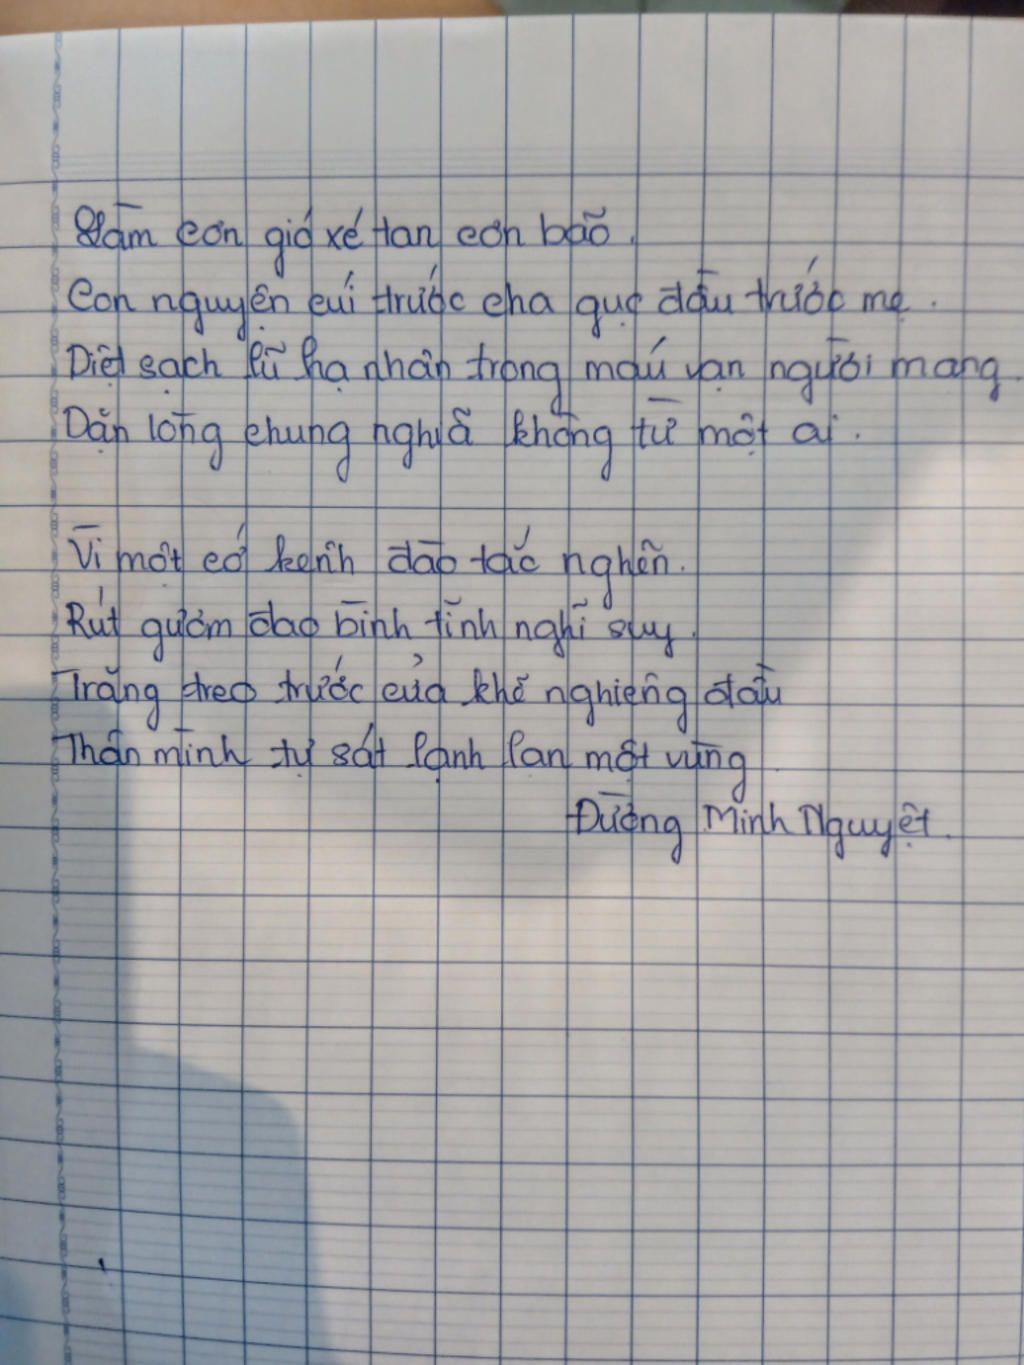 Gầm cơn gió xé tan cơn bão.
Con nguyện cúi trước cha gục đầu trước mẹ.
Diệt sạch lũ hạ nhân trong máu vạn người mang.
Dặn lòng chung nghĩa không từ một ai.
Vì một cớ kênh đào tắc nghẽn.
Rút gươm đao bình tĩnh nghĩ suy.
Trăng treo trước cửa khẽ nghiêng đầu
Thân mình tự sát lạnh lan một vùng
Đường Minh Nguyệt.